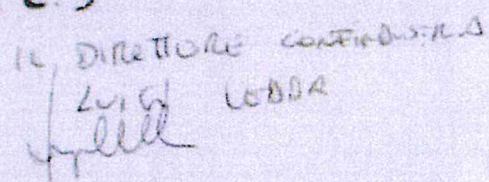 IL DIRETTORE CONFINDUSTRIA
LUIGI LEDDA